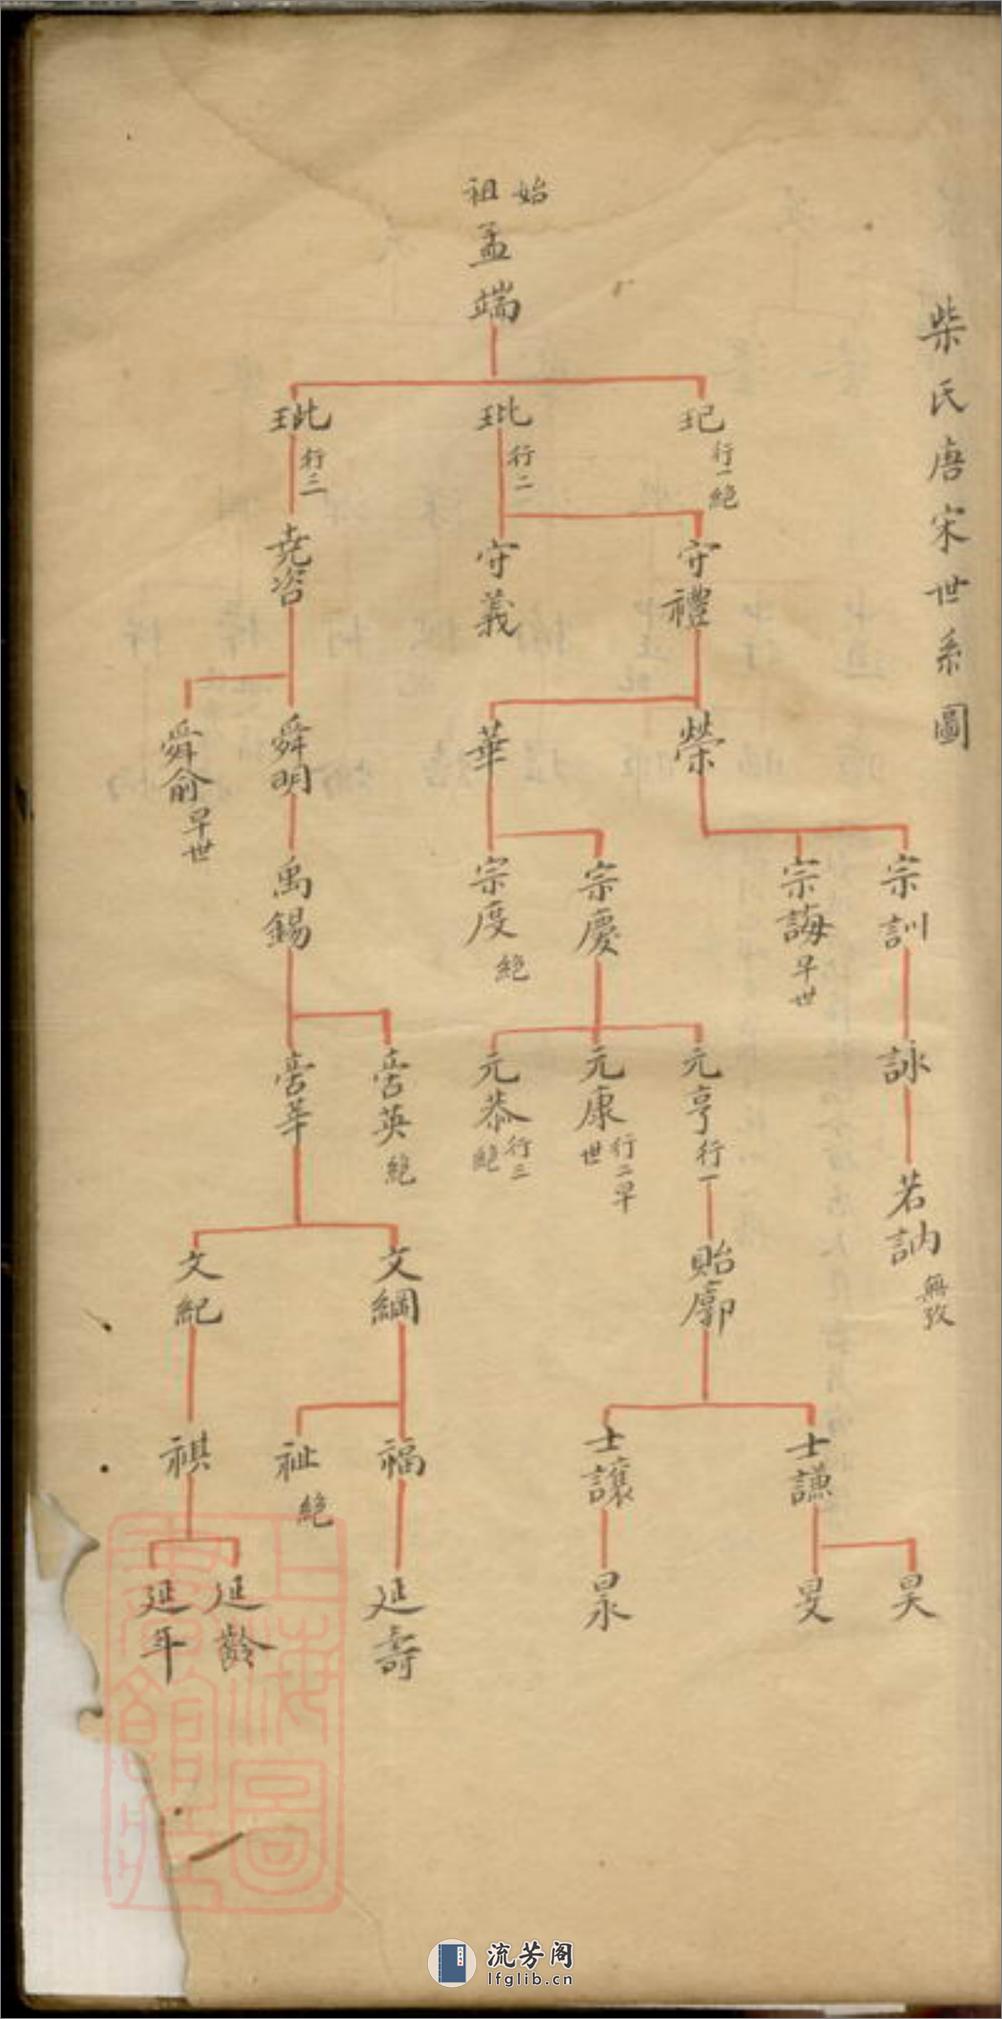 柴氏唐宋世系圖
始祖
孟端
玘 行一 絕
玭 行二
玼 行三
守禮
守義
堯咨
榮
華
舜明
舜俞 早世
宗訓
宗誨 早世
宗慶
宗度 絕
禹錫
詠
元亨 行一
元康 行二早世
元恭 行三絕
雱英 絕
雱華
若訥 無孜
貽廓
文綱
文紀
士謙
士讓
福
祉 絕
祺
昊
旻
㫤
延壽
延齡
延年
上海圖書館藏
流芳阁
lfglib.cn